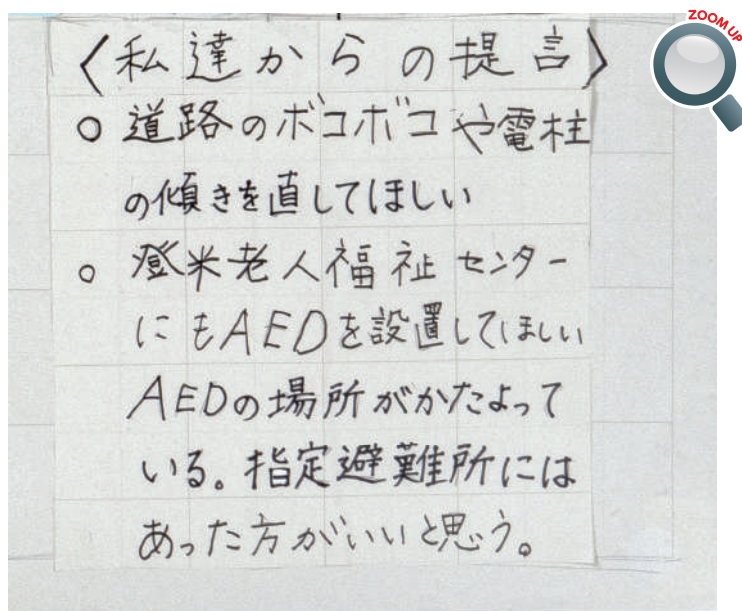 ZOOM UP
〈私達からの提言〉
○ 道路のボコボコや電柱
の傾きを直してほしい
○ 登米老人福祉センター
にもAEDを設置してほしい
AEDの場所がかたよって
いる。指定避難所には
あった方がいいと思う。